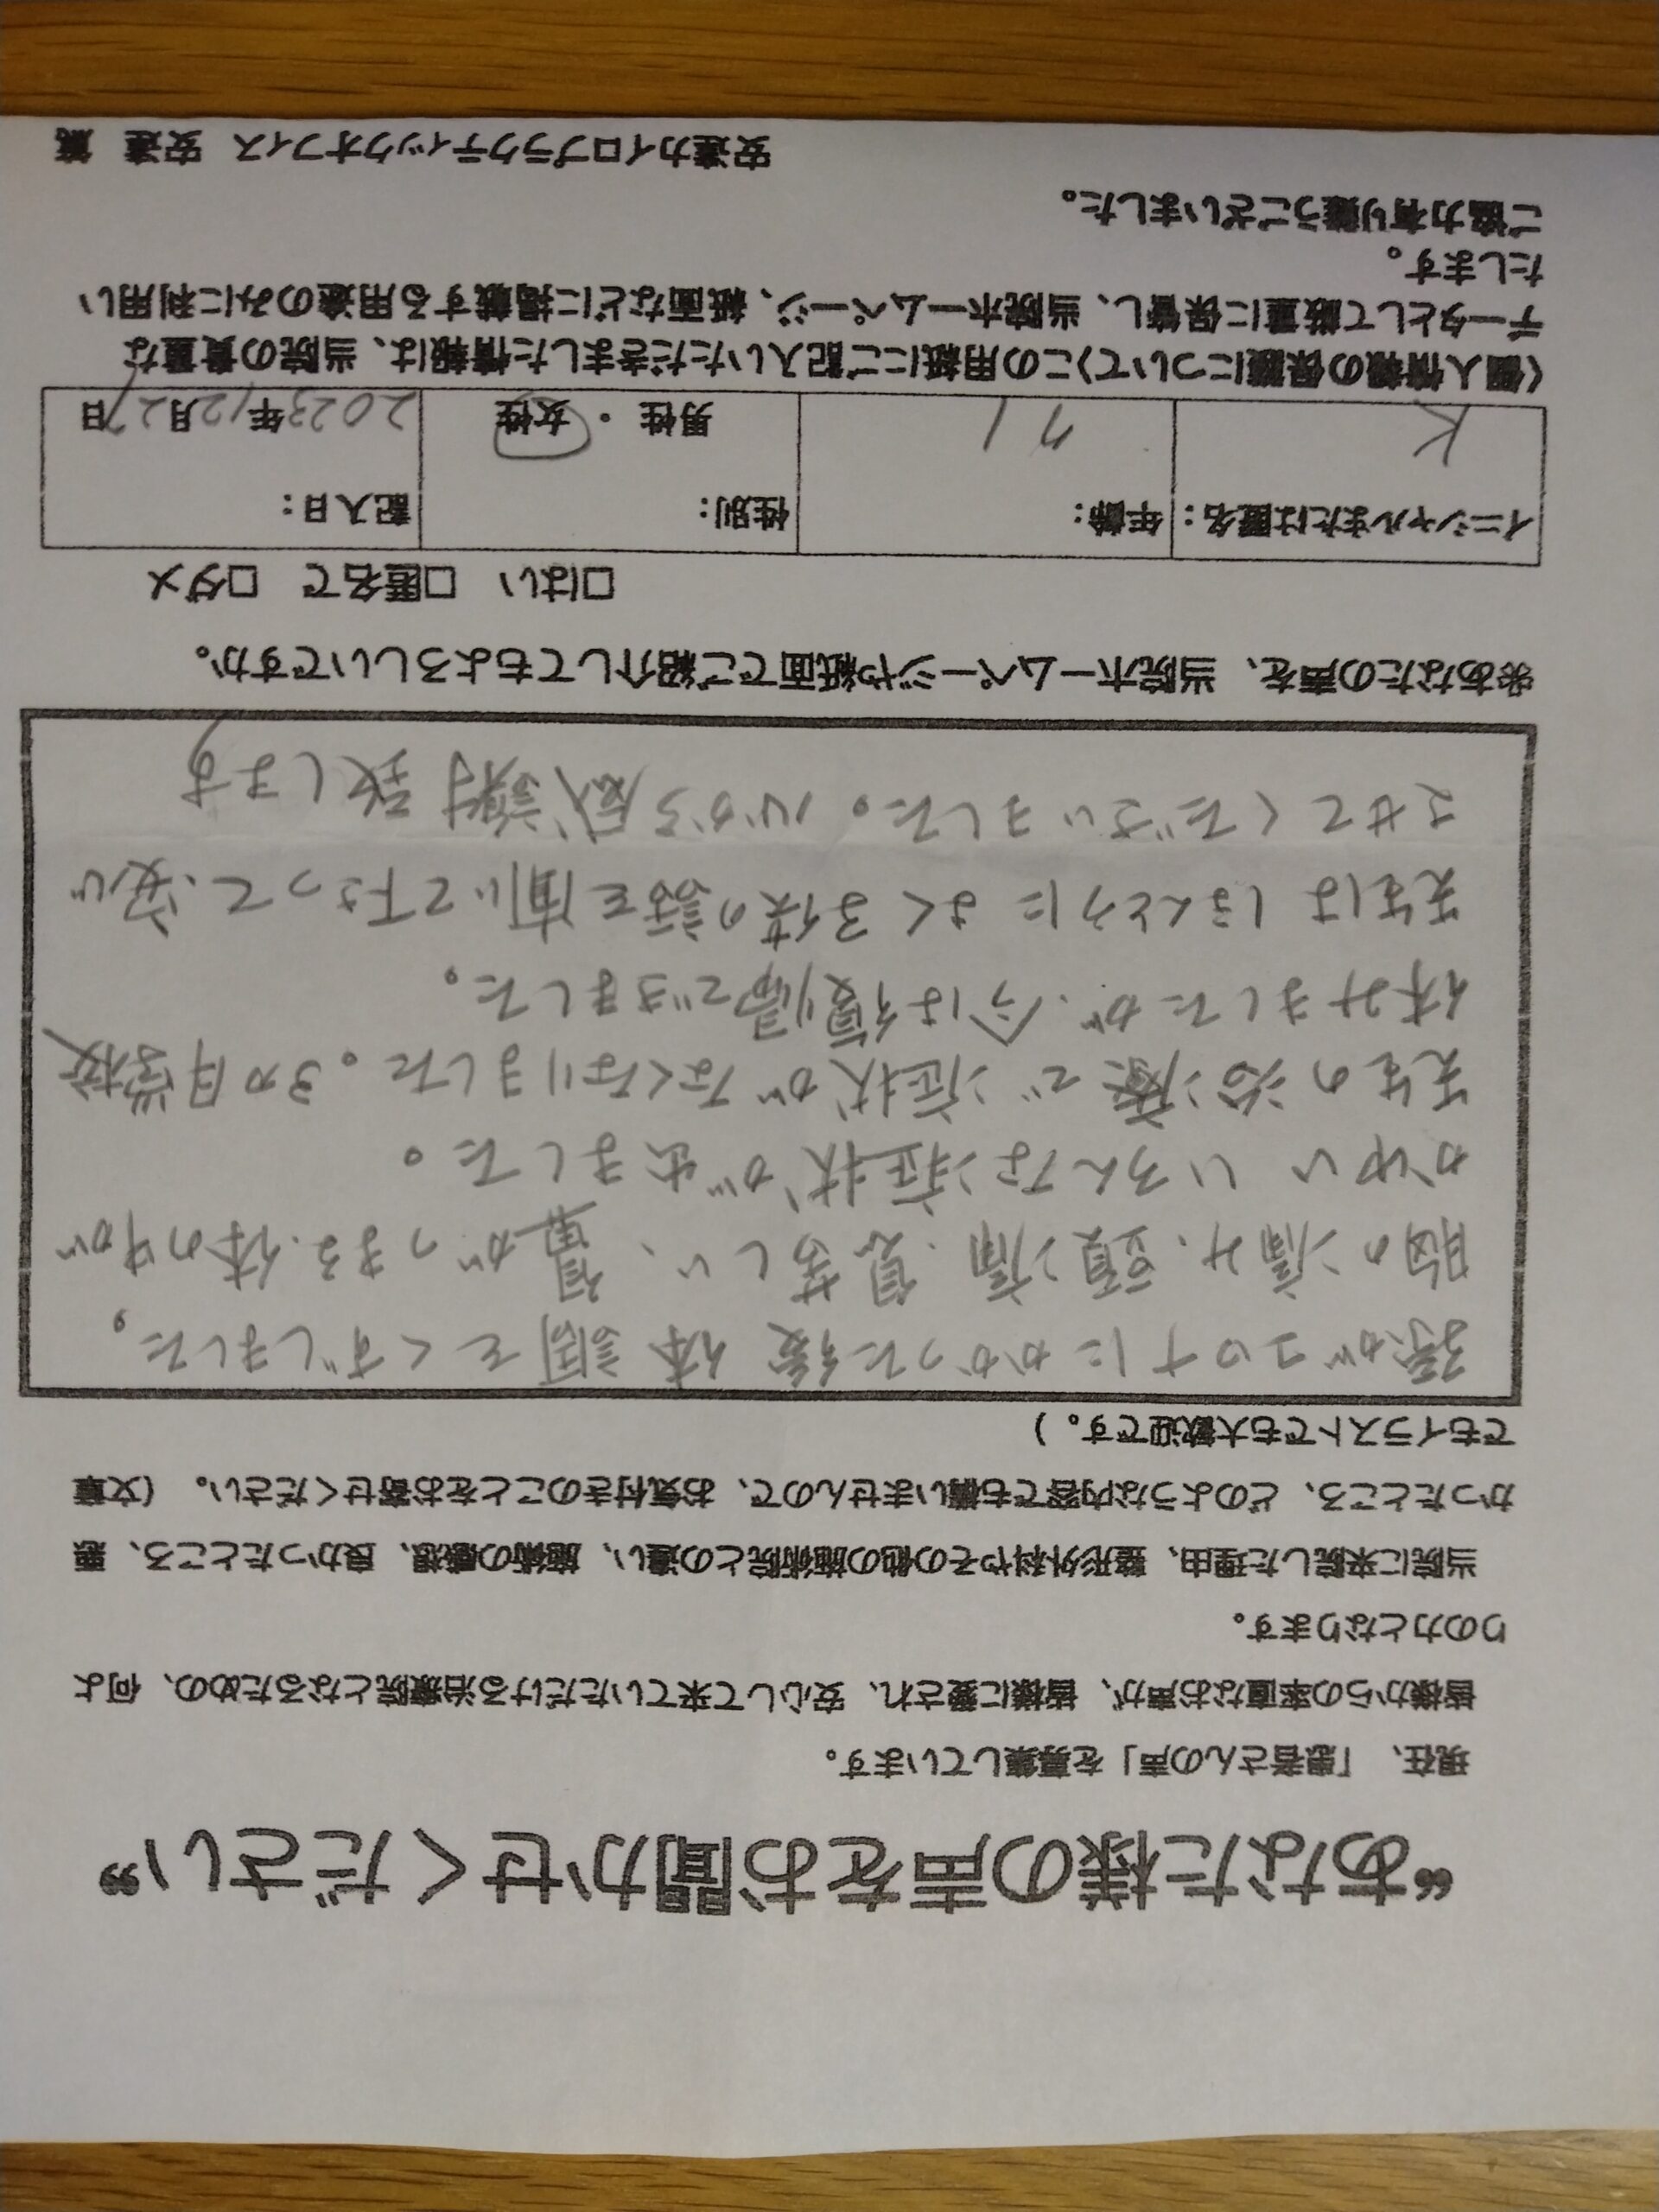 “あなた様の声をお聞かせください”
現在、「患者さんの声」を募集しています。
皆様からの率直なお声が、皆様に愛され、安心して来ていただける治療院となるための、何よ
りの力となります。
当院に来院した理由、整形外科やその他の施術院との違い、施術の感想、良かったところ、悪
かったところ、どのような内容でも構いませんので、お気付きのことをお寄せください。（文章
でもイラストでも大歓迎です。）
孫がコロナにかかった後 体調をくずしました,
胸の痛み、頭痛、息苦しい、胃がつまる、体の中が
かゆい いろんな症状が出ました。
先生の治療で症状がなくなりました。3ヵ月学校
休みましたが、今は復帰できました。
先生は ほんとうに よく 孫の話を聞いて下さって、安心
させてくださいました。心から感謝 致します
※あなたの声を、当院ホームページや紙面でご紹介してもよろしいですか。
□はい □匿名で □ダメ
イニシャルまたは匿名： 年齢： 性別： 記入日：
K 71 男性 ・ 女性 2023年12月27日
〈個人情報の保護について〉この用紙にご記入いただきました情報は、当院の貴重な
データとして厳重に保管し、当院ホームページ、紙面などに掲載する用途のみに利用い
たします。
ご協力有り難うございました。
安達カイロプラクティックオフィス 安達